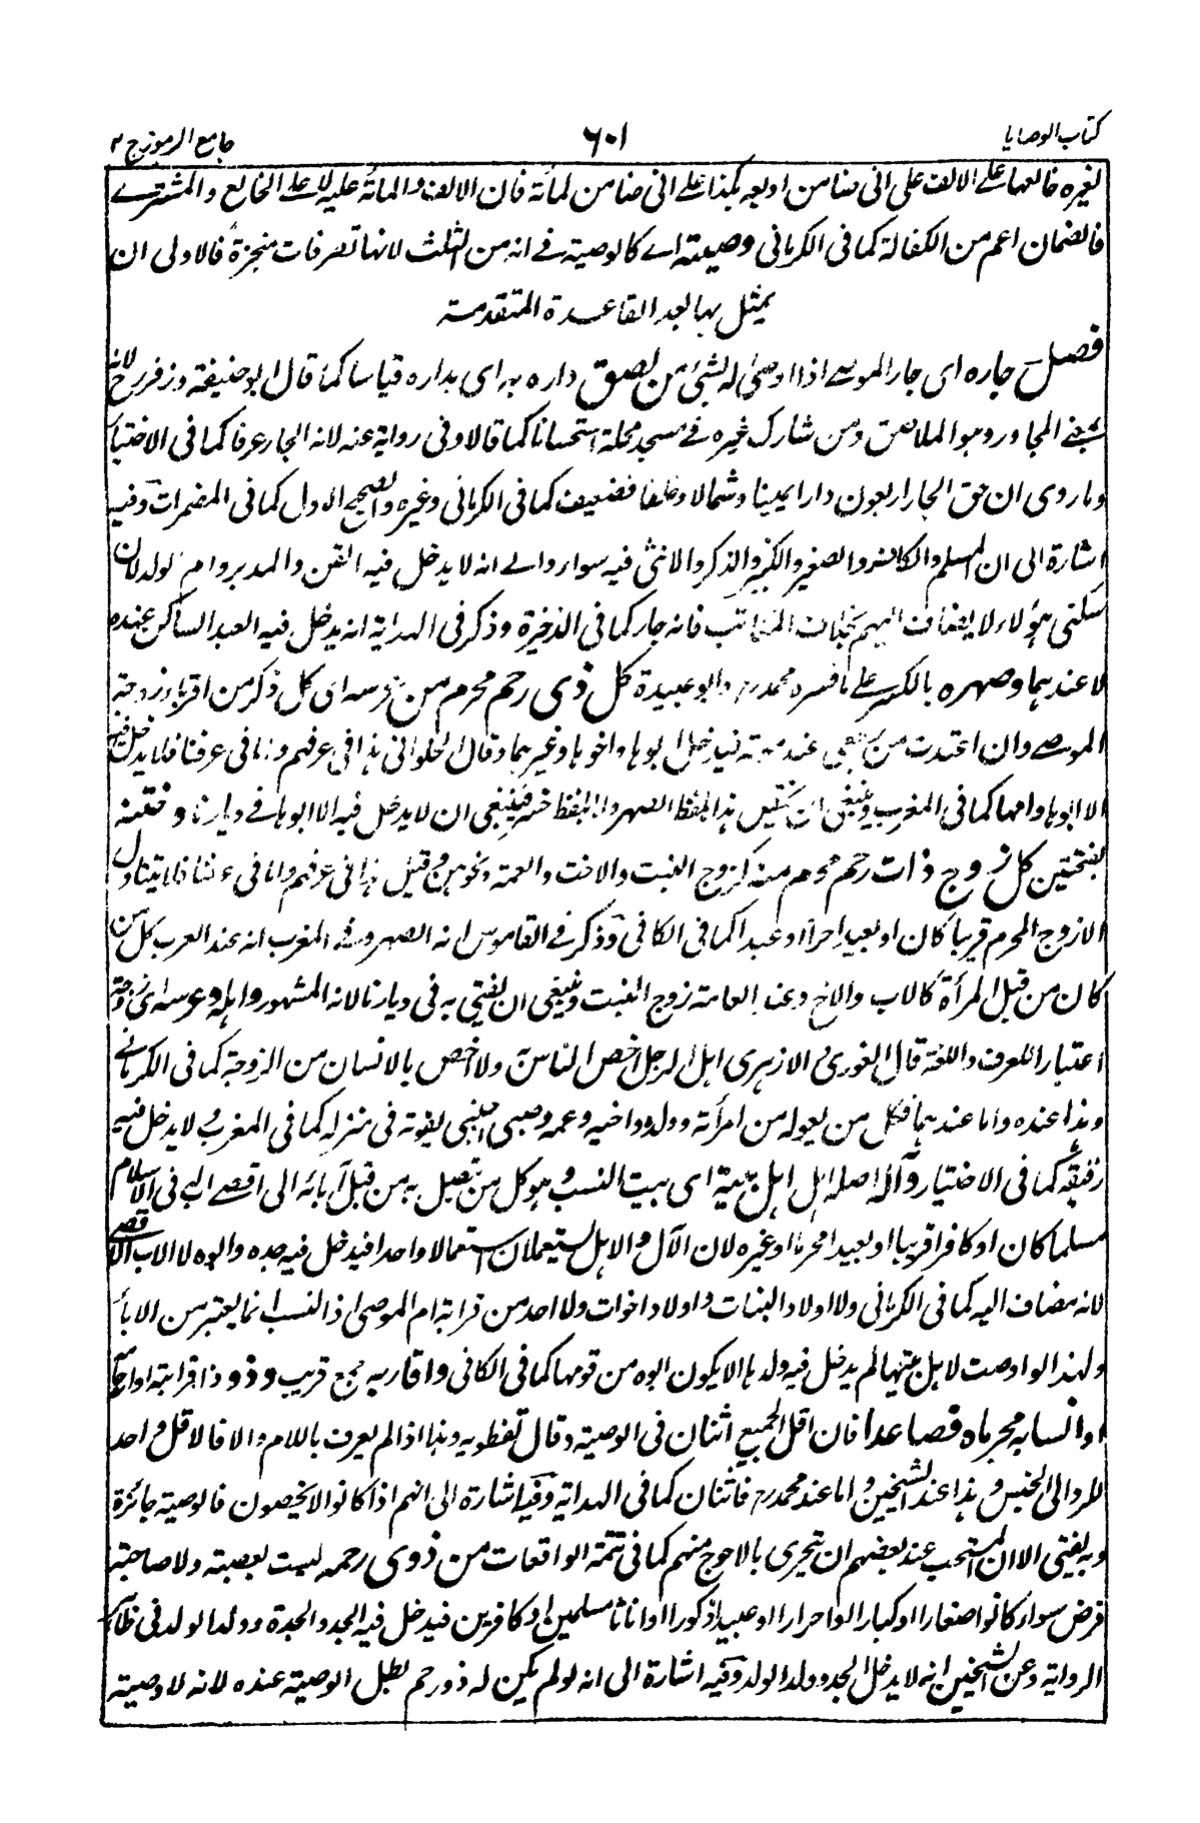 كتاب الوصايا
٦٠١
جامع الرموز ج ٢
لغيره خالعها على الالف على انى ضامن او بعه بكذا على انى ضامن لمائة فان الالف والمائة عليه لا على الخالع والمشترے
فالضمان اعم من الكفالة كما فى الكرمانى وصيته اے كالوصية فے انه من الثلث لانها تصرفات منجزة فالاولى ان
يمثل بها بعد القاعدة المتقدمة
فصل جاره اى جار الموصے اذا اوصى له بشئ من لصق داره به اى بداره قياسا كما قال ابو حنيفة وزفر رح لانه
بمعنے المجاور وهو الملاصق ومن شارك غيره فے مسجد محلة استحسانا كما قالا وفى رواية عنه لانه الجار عرفا كما فى الاختيار
وما روى ان حق الجار اربعون دارا يمينا وشمالا وخلفا فضعيف كما فى الكرمانى وغيره والصحيح الاول كما فى المضمرات وفيه
اشارة الى ان المسلم والكافر والصغير والكبير والذكر والانثى فيه سواء والے انه لا يدخل فيه القن والمدبر وام الولد لان
سكنى هؤلاء لا يضاف اليهم بخلاف المكاتب فانه جار كما فى الذخيرة وذكر فى الهداية انه يدخل فيه العبد الساكن عنده
لا عندهما وصهره بالكسر علے ما فسره محمد رح وابو عبيدة كل ذى رحم محرم من عرسه اى كل ذكر من اقرباء زوجة
الموصے وان اعتدت من رجعى عند موته فيدخل ابوها واخوها وغيرهما وقال الحلوانى هذا فى عرفهم واما فى عرفنا فلا يدخل فيه
الا ابوها وامها كما فى المغرب وينبغى ان هذا بلفظ الصهر واما بلفظ خسر فينبغى ان لا يدخل فيه الا ابوها فے ديارنا وختنه
بفتحتين كل زوج ذات رحم محرم منه كزوج البنت والاخت والعمة ونحوهن وقيل هذا فى عرفهم واما فى عرفنا فلا يتناول
الا زوج المحرم قريبا كان او بعيدا حرا او عبدا كما فى الكافى وذكر فے القاموس انه الصهر وفے المغرب انه عند العرب كل من
كان من قبل المرأة كالاب والاخ وعند العامة زوج البنت وينبغى ان يفتى به فى ديارنا لانه المشهور واهله عرسه اى زوجته
اعتبارا للعرف واللغة قال الغورى والازهرى اهل الرجل اخص الناس به ولا اخص بالانسان من الزوجة كما فى الكرمانے
وهذا عنده واما عندهما فكل من يعوله من امرأة وولد واخيه وعمه وصبى اجنبى يقوته فى منزله كما فى المغرب لا يدخل فيه
رقيقه كما فى الاختيار وآله اصله اهل اهل بيته اى بيت النسب وهو كل من يتصل به من قبل آبائه الى اقصے اب فى الاسلام
مسلما كان او كافرا قريبا او بعيدا محرما او غيره لان الآل والاهل يستعملان استعمالا واحدا فيدخل فيه جده وابوه لا الاب الاقصے
لانه مضاف اليه كما فى الكرمانى ولا اولاد البنات واولاد اخوات ولا احد من قرابة ام الموصى اذ النسب انما يعتبر من الآباء
ولهذا لو اوصت لاهل بيتها لم يدخل فيه ولدها الا يكون ابوه من قومها كما فى الكافى واقاربه جمع قريب وذو وذا قرابته او ارحامه
او انسابه محرماه فصاعدا فان اقل الجميع اثنان فى الوصية وقال نفطويه وهذا اذا لم يعرف باللام والا فالاقل واحد
للرد الى الجنس وهذا عند الشيخين واما عند محمد رح فاثنان كما فى الهداية وفيه اشارة الى انهم اذا كانوا لا يحصون فالوصية جائزة
وبه يفتى الا ان المستحب عند بعضهم ان يتحرى بالاحوج منهم كما فى تتمة الواقعات من ذوى رحمه ليست بعصبة ولا صاحبة
فرض سواء كانوا صغارا او كبارا او احرارا او عبيدا ذكورا او اناثا مسلمين او كافرين فيدخل فيه الجد والجدة وولد الولد فى ظاهر
الرواية وعن الشيخين انه لا يدخل الجد وولد الولد وفيه اشارة الى انه لو لم يكن له ذو رحم بطل الوصية عنده لانه لا وصية